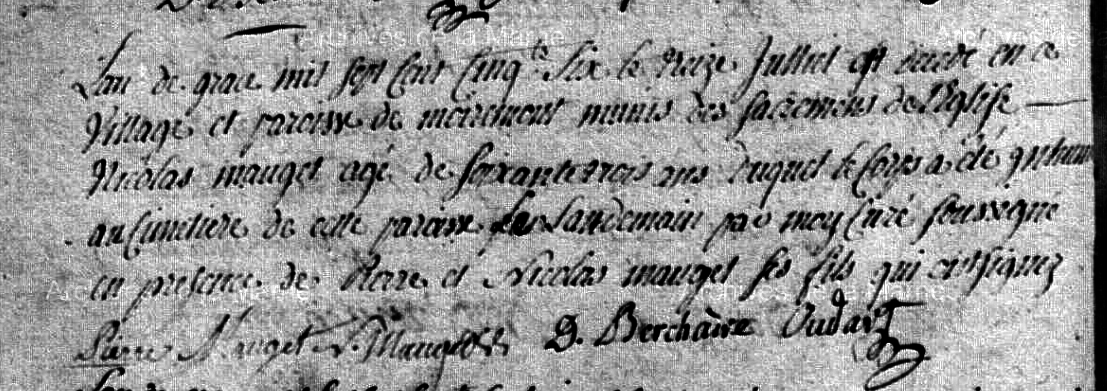 L'an de grace mil sept Cent Cinqte Six le treize Julliet est decedé en ce
Village et paroisse de moiremont munis des sacremens de l'Eglise
Nicolas mauget agé de soixante trois ans duquel le Corps a été inhumé
au Cimetiere de cette paroisse le Landemain par moy Curé soussigné
en presence de Pierre et Nicolas mauget ses fils qui ont signez
Pierre Mauget N. Mauget D. Berchaire Oudart